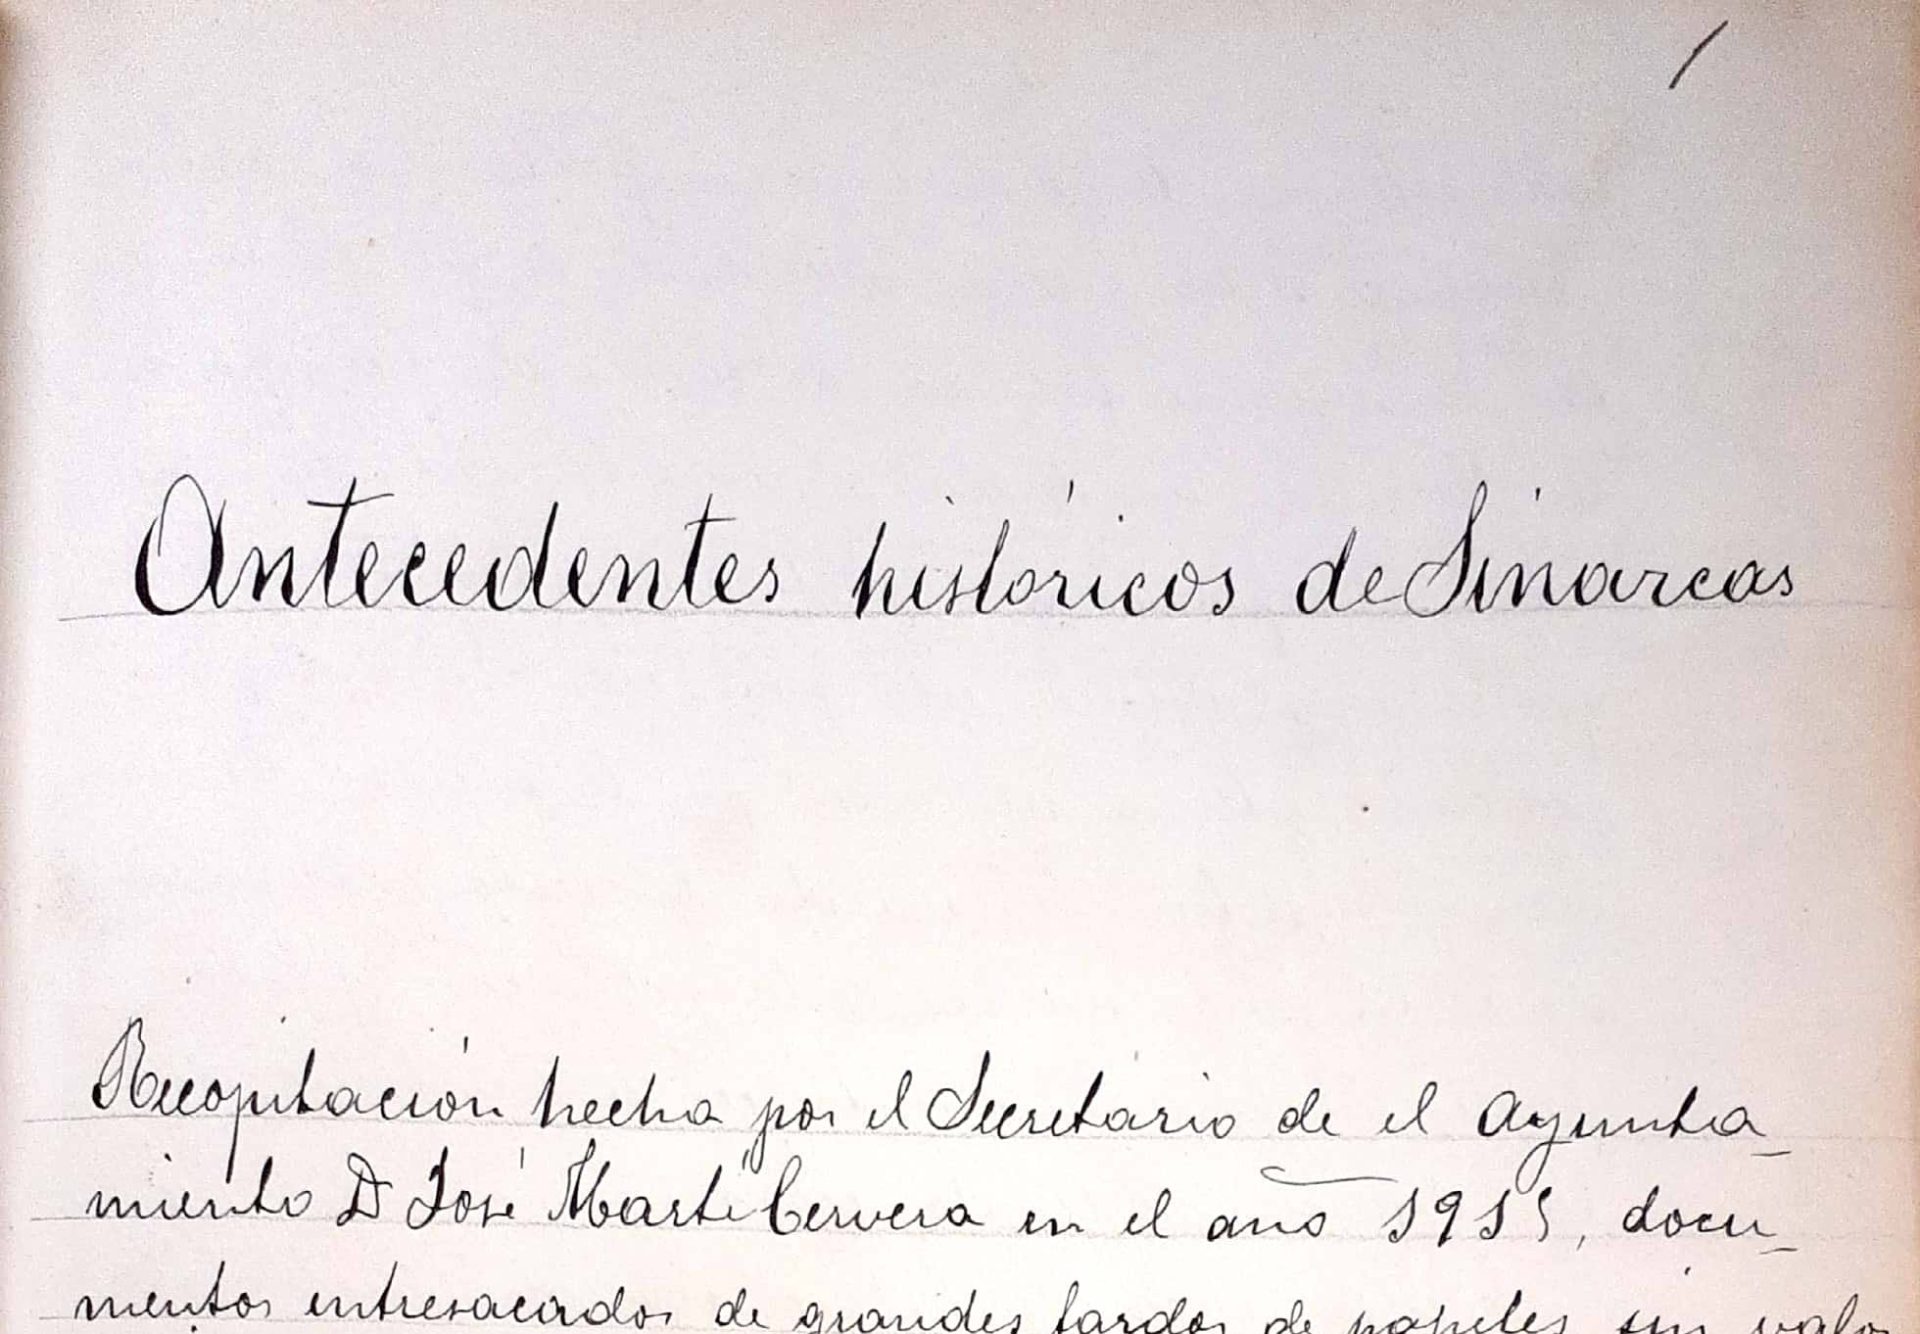 1
Antecedentes históricos de Sinarcas
Recopilación hecha por el Secretario de el Ayunta_
miento D José Martí Cervera en el año 1915, docu_
mentos entresacados de grandes fardos de papeles sin valor